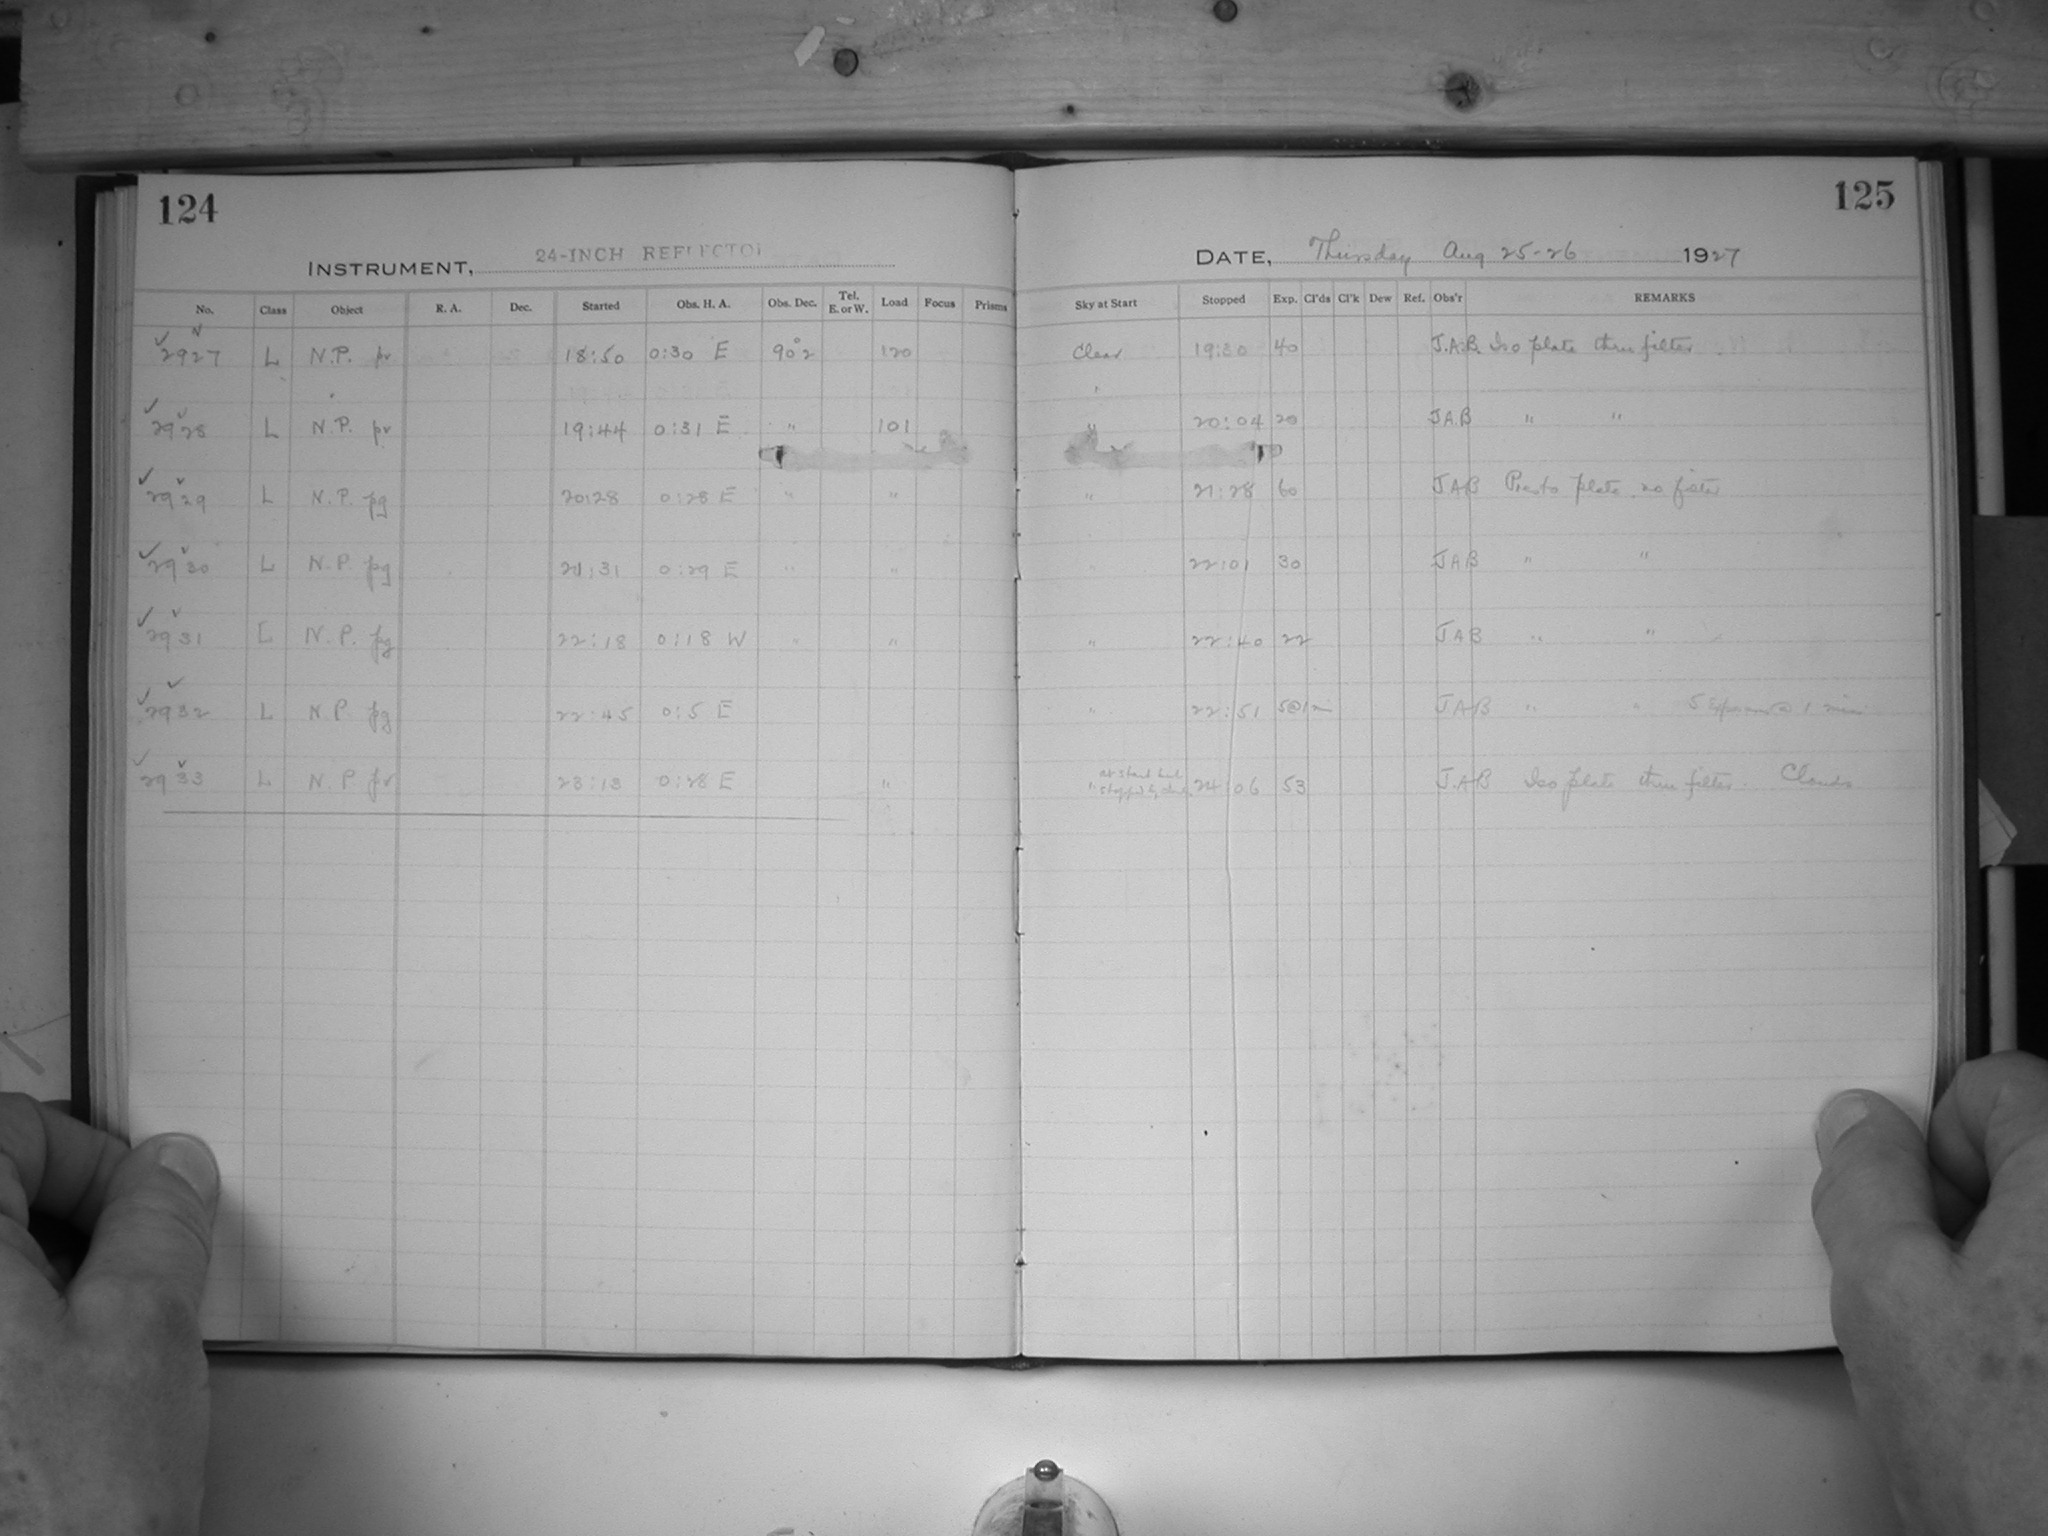 124
125
INSTRUMENT, 24-INCH REFLECTOR
DATE, Thursday Aug 25-26 1927
No. Class Object R. A. Dec. Started Obs. H. A. Obs. Dec. Tel. E. or W. Load Focus Prisms Sky at Start Stopped Exp. Cl'ds Cl'k Dew Ref. Obs'r REMARKS
2927 L N.P. pv 18:50 0:30 E 90°2 120 Clear 19:30 40 J.A.B. Iso plate thru filter
2928 L N.P. pv 19:44 0:31 E " 101 " 20:04 20 JAB " "
2929 L N.P. pg 20:28 0:28 E " " " 21:28 60 JAB Presto plate no filter
2930 L N.P. pg 21:31 0:29 E " " " 22:01 30 JAB " "
2931 L N.P. pg 22:18 0:18 W " " " 22:40 22 JAB " "
2932 L N.P pg 22:45 0:5 E " 22:51 5@1m JAB " " 5 Exposures @ 1 min
2933 L N.P pv 23:13 0:28 E " " at start but stopped by clouds 24:06 53 J.AB Iso plate thru filter. Clouds